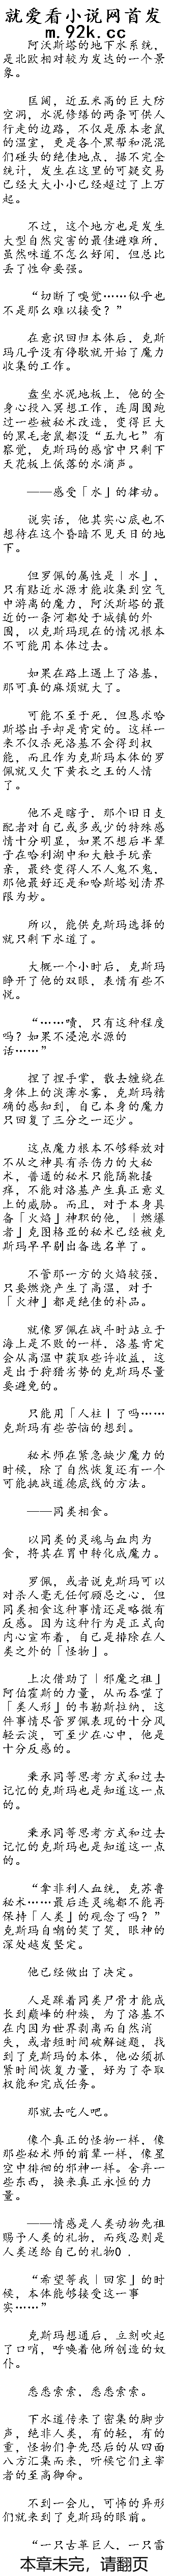 就爱看小说网首发
m.92k.cc
阿沃斯塔的地下水系统，
是北欧相对较为发达的一个景
象。
匡阔，近五米高的巨大防
空洞，水泥修缮的两条可供人
行走的边路，不仅是原本老鼠
的温室，更是各个黑帮和混混
们碰头的绝佳地点，据不完全
统计，发生在这里的可疑交易
已经大大小小已经超过了上万
起。
不过，这个地方也是发生
大型自然灾害的最佳避难所，
虽然味道不怎么好闻，但总比
丢了性命要强。
“切断了嗅觉……似乎也
不是那么难以接受？”
在意识回归本体后，克斯
玛几乎没有停歇就开始了魔力
收集的工作。
盘坐水泥地板上，他的全
身心投入冥想工作，连周围跑
过一些被秘术改造，变得巨大
的黑毛老鼠都没“五九七”有
察觉，克斯玛的感官中只剩下
天花板上低落的水滴声。
——感受「水」的律动。
说实话，他其实心底也不
想待在这个昏暗不见天日的地
下。
但罗佩的属性是「水」，
只有贴近水源才能收集到空气
中游离的魔力，阿沃斯塔的最
近的一条河都处于城镇的外
围，以克斯玛现在的情况根本
不可能用本体过去。
如果在路上遇上了洛基，
那可真的麻烦就大了。
可能不至于死，但恳求哈
斯塔出手却是肯定的。这样一
来不仅杀死洛基不会得到权
能，而且作为克斯玛本体的罗
佩就又欠下黄衣之王的人情
了。
他不是瞎子，那个旧日支
配者对自己或多或少的特殊感
情十分明显，如果不想后半辈
子在哈利湖中和大触手玩亲
亲，最终变得人不人鬼不鬼，
那他最好还是和哈斯塔划清界
限为妙。
所以，能供克斯玛选择的
就只剩下水道了。
大概一个小时后，克斯玛
睁开了他的双眼，表情有些不
悦。
“……啧，只有这种程度
吗？如果不浸泡水源的
话……”
捏了捏手掌，散去缠绕在
身体上的淡薄水雾，克斯玛精
确的感知到，自己本身的魔力
只回复了三分之一还少。
这点魔力根本不够释放对
不从之神具有杀伤力的大秘
术，普通的秘术只能隔靴搔
痒，不能对洛基产生真正意义
上的威胁。而且，对于本身具
备「火焰」神职的他，「燃爆
者」克图格亚的秘术已经被克
斯玛早早剔出备选名单了。
不管那一方的火焰较强，
只要燃烧产生了高温，对于
「火神」都是绝佳的补品。
就像罗佩在战斗时站立于
海上是不败的一样，洛基肯定
会从高温中获取些许收益，这
是出于狩猎劣势的克斯玛尽量
要避免的。
只能用「人柱」了吗……
克斯玛有些苦恼的想到。
秘术师在紧急缺少魔力的
时候，除了自然恢复还有一个
可能挑战道德底线的方法。
——同类相食。
以同类的灵魂与血肉为
食，将其在胃中转化成魔力。
罗佩，或者说克斯玛可以
对杀人毫无任何顾忌之心，但
同类相食这种事情还是略微有
反感。因为这种行为是正式向
内心宣布着，自己是排除在人
类之外的「怪物」。
上次借助了「邪魔之祖」
阿伯霍斯的力量，从而吞噬了
「类人形」的韦勒斯拉纳，这
件事情尽管罗佩表现的十分风
轻云淡，可至少在心中，他是
十分反感的。
秉承同等思考方式和过去
记忆的克斯玛也是知道这一点
的。
秉承同等思考方式和过去
记忆的克斯玛也是知道这一点
的。
“拿非利人血统，克苏鲁
秘术……最后连灵魂都不能再
保持「人类」的观念了吗？”
克斯玛自嘲的笑了笑，眼神的
深处越发坚定。
他已经做出了决定。
人是踩着同类尸骨才能成
长到巅峰的种族，为了洛基不
在内因为世界剥离而自然消
失，或者短时间破解谜题，找
到了克斯玛的本体，他必须抓
紧时间恢复力量，好为了夺取
权能和完成任务。
那就去吃人吧。
像个真正的怪物一样，像
那些秘术师的前辈一样，像星
空中徘徊的邪神一样。舍弃一
些东西，换来真正永恒的力
量。
——情感是人类动物先祖
赐予人类的礼物，而残忍则是
人类送给自己的礼物0 .
“希望等我「回家」的时
候，本体能够接受这一事
实……”
克斯玛想通后，立刻吹起
了口哨，呼唤着他所创造的奴
仆。
悉悉索索，悉悉索索。
下水道传来了密集的脚步
声，绝非人类，有的轻，有的
重，怪物们争先恐后的从四面
八方汇集而来，听候它们主宰
者的至高御命。
不到一会儿，可怖的异形
们就来到了克斯玛的眼前。
“一只古革巨人，一只雷
本章未完，请翻页